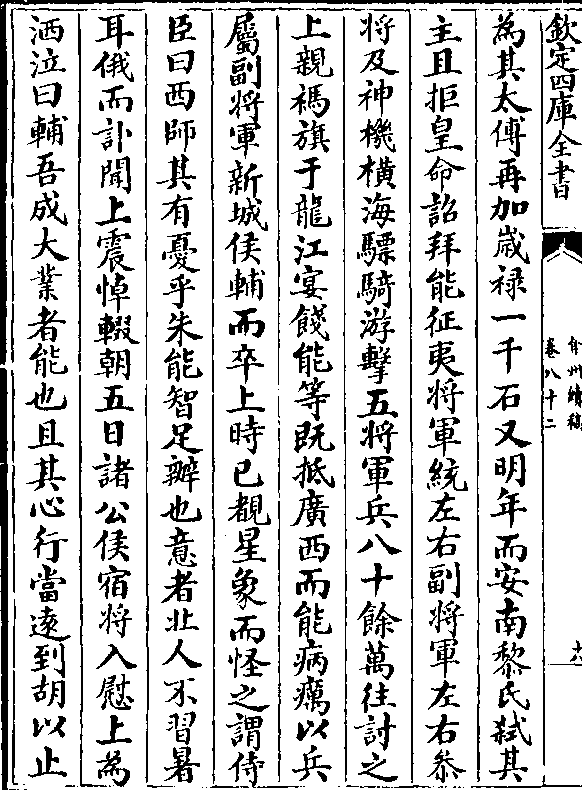 欽定四庫全書
弇州續稿
卷八十二
十六
為其太傅再加歲禄一千石又明年而安南黎氏弑其
主且拒皇命詔拜能征夷將軍統左右副將軍左右叅
將及神機橫海驃騎游擊五將軍兵八十餘萬徃討之
上親禡旗于龍江宴餞能等既抵廣西而能病癘以兵
屬副將軍新城侯輔而卒上時已覩星象而怪之謂侍
臣曰西師其有憂乎朱能智足辦也意者北人不習暑
耳俄而訃聞上震悼輟朝五日諸公侯宿將入慰上為
洒泣曰輔吾成大業者能也且其心行當遠到胡以止